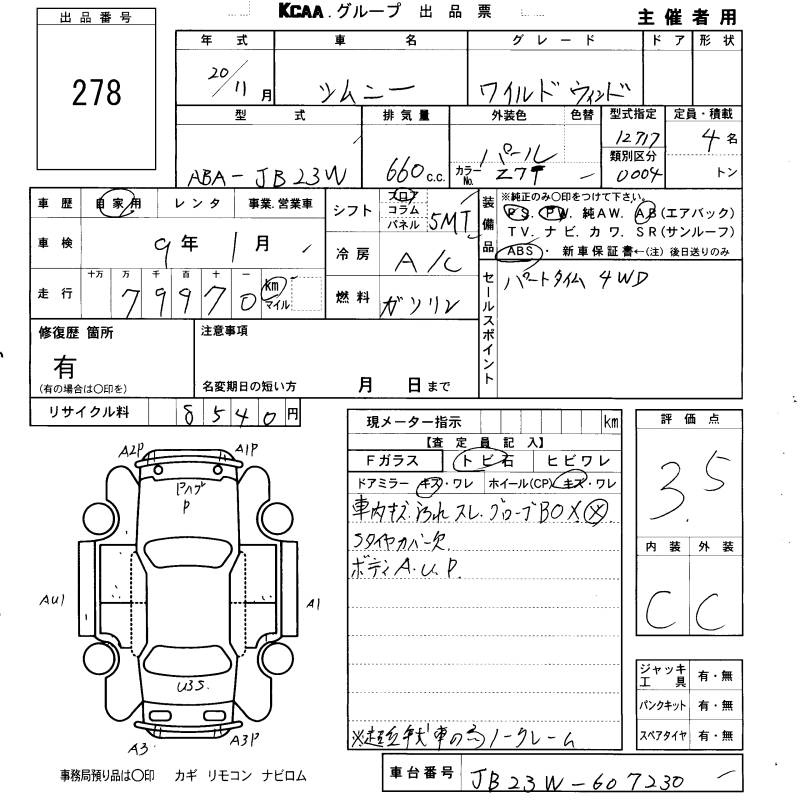 KCAA グループ 出品票
主催者用
出品番号
278
年式 車名 グレード ドア 形状
20/11月 ジムニー ワイルド ウィンド
型式 排気量 外装色 色替 型式指定 定員・積載
ABA-JB23W 660 c.c. パール カラーNo. Z7T 12717 4名
類別区分
0004 トン
車歴 自家用 レンタ 事業.営業車
車検 9年 1月
走行 十万 万 千 百 十 一
79970 km マイル
シフト フロア コラム パネル 5MT
冷房 A/C
燃料 ガソリン
装備品 ※純正のみ〇印をつけて下さい。
PS. PW. 純AW. AB(エアバック)
TV. ナビ. カワ. SR(サンルーフ)
ABS・ 新車保証書←(注) 後日送りのみ
セールスポイント パートタイム 4WD
修復歴 箇所
有
(有の場合は〇印を)
注意事項
名変期日の短い方 月 日まで
リサイクル料 8540円
現メーター指示 km
【査定員記入】
Fガラス トビ石 ヒビワレ
ドアミラー キズ・ワレ ホイール(CP) キズ・ワレ
車内キズ.汚れ スレ. グローブBOX
Sタイヤカバー欠
ボディ A.U.P.
ノークレーム
評価点
3.5
内装 外装
C C
ジャッキ工具 有・無
パンクキット 有・無
スペアタイヤ 有・無
A2P A1P
P
AU1 A1
U3S.
A3 A3P
事務局預り品は〇印 カギ リモコン ナビロム
車台番号 JB23W-607230